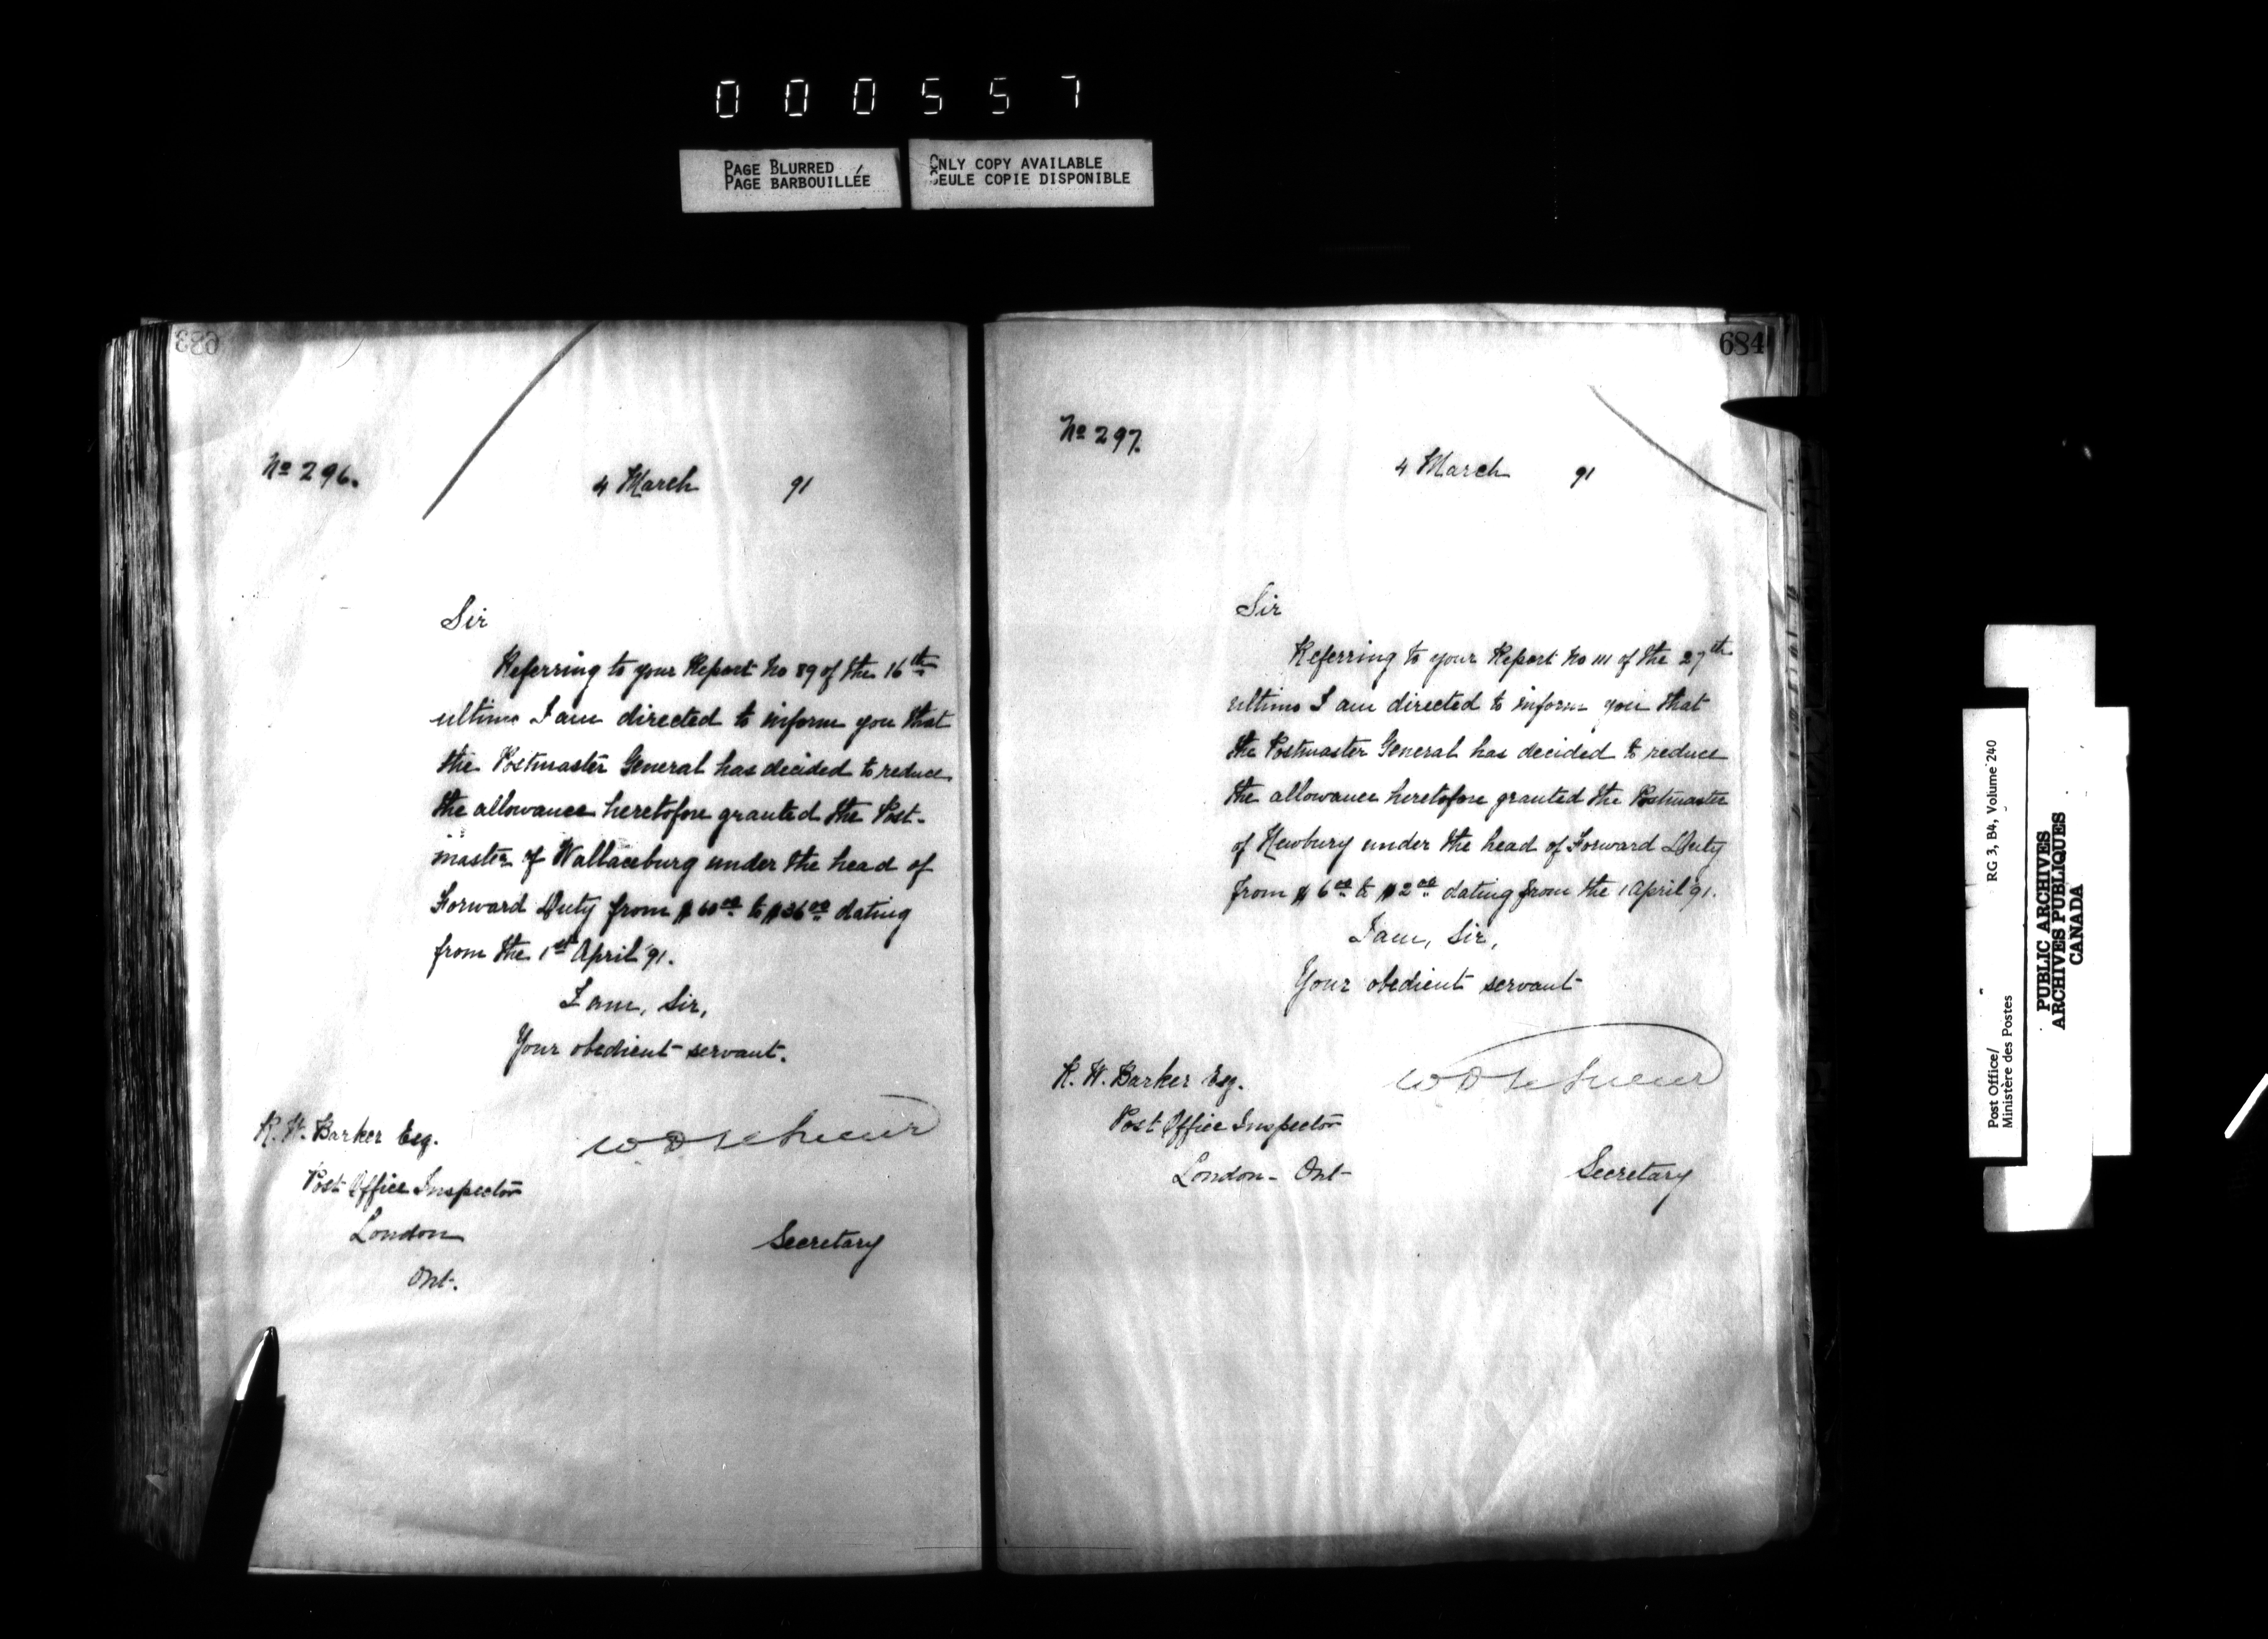 000557
PAGE BLURRED
PAGE BARBOUILLÉE
ONLY COPY AVAILABLE
SEULE COPIE DISPONIBLE
683
No 296.
4 March 91
Sir
Referring to your Report No 89 of the 16th
ultimo I am directed to inform you that
the Postmaster General has decided to reduce
the allowance heretofore granted the Post-
master of Wallaceburg under the head of
Forward Duty from $60.00 to $36.00 dating
from the 1st April '91.
I am, Sir,
Your obedient servant.
R. W. Barker Esq.
Post Office Inspector
London
Ont.
W D LeSueur
Secretary
684
No 297.
4 March 91
Sir
Referring to your Report No 111 of the 27th
ultimo I am directed to inform you that
the Postmaster General has decided to reduce
the allowance heretofore granted the Postmaster
of Newbury under the head of Forward Duty
from $6.00 to $2.00 dating from the 1 April '91.
I am, Sir,
Your obedient servant
R. W. Barker Esq.
Post Office Inspector
London - Ont
W D LeSueur
Secretary
Post Office/
Ministère des Postes
RG 3, B4, Volume 240
PUBLIC ARCHIVES
ARCHIVES PUBLIQUES
CANADA